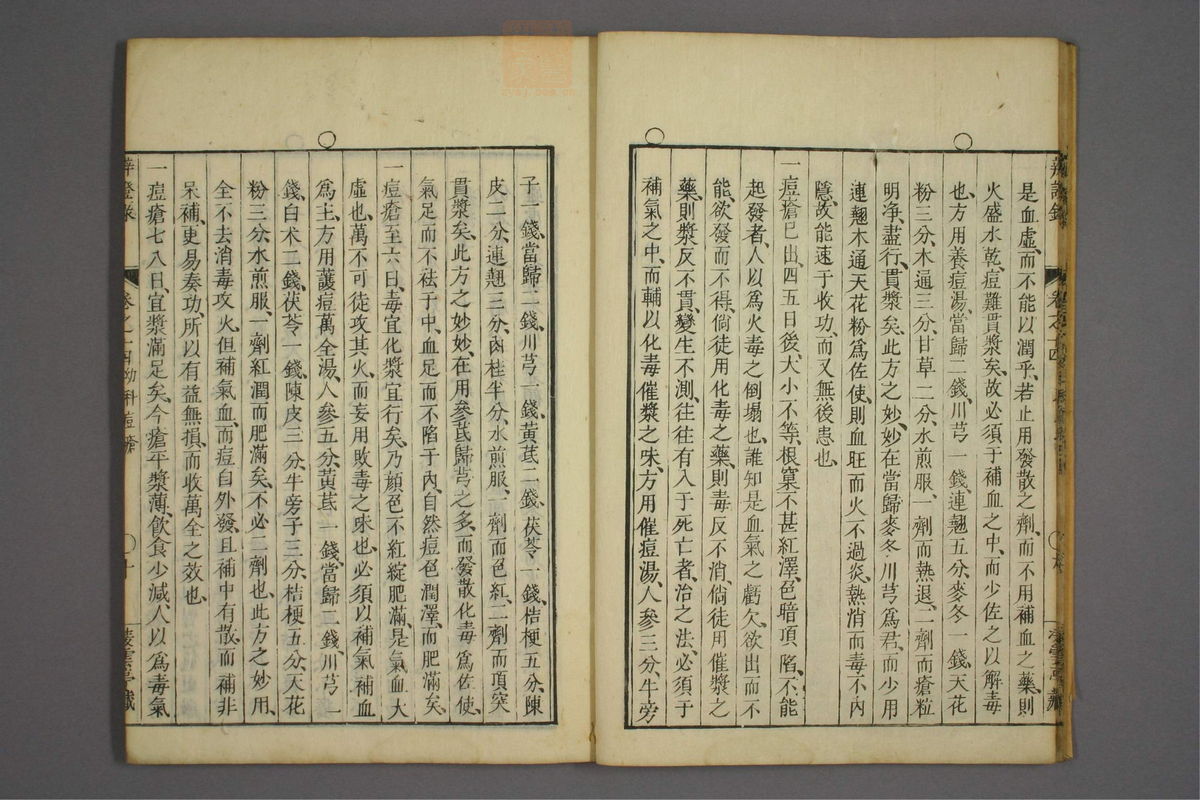 是血虛、而不能以潤乎、若止用發散之劑、而不用補血之藥、則
火盛水乾、痘難貫漿矣、故必須于補血之中、而少佐之以解毒
也、方用養痘湯、當歸二錢、川芎一錢、連翹五分、麥冬一錢、天花
粉三分、木通三分、甘草二分、水煎服、一劑而熱退、二劑而瘡粒
明净、盡行貫漿矣、此方之妙、妙在當歸麥冬川芎爲君、而少用
連翹木通天花粉爲佐使、則血旺而火不過炎、熱消而毒不內
隱、故能速于收功、而又無後患也、
一痘瘡已出、四五日後、大小不等、根窠不甚紅澤、色暗頂陷、不能
起發者、人以爲火毒之倒塌也、誰知是血氣之虧欠、欲出而不
能、欲發而不得、倘徒用化毒之藥、則毒反不消、倘徒用催漿之
藥、則漿反不貫、變生不測、往往有入于死亡者、治之法、必須于
補氣之中、而輔以化毒催漿之味、方用催痘湯、人參三分、牛旁
子一錢、當歸二錢、川芎一錢、黃芪二錢、茯苓一錢、桔梗五分、陳
皮二分、連翹三分、肉桂半分、水煎服、一劑而色紅、二劑而頂突
貫漿矣、此方之妙妙、在用參芪歸芎之多、而發散化毒爲佐使、
氣足而不祛于中、血足而不陷于內、自然痘色潤澤、而肥滿矣、
一痘瘡至六日、毒宜化漿宜行矣、乃顏色不紅綻肥滿、是氣血大
虛也、萬不可徒攻其火、而妄用敗毒之味也、必須以補氣補血
爲主、方用護痘萬全湯、人參五分、黃芪一錢、當歸二錢、川芎一
錢、白术二錢、茯苓一錢、陳皮三分、牛旁子三分、桔梗五分、天花
粉三分、水煎服、一劑紅潤而肥滿矣、不必二劑也、此方之妙用、
全不去消毒攻火、但補氣血、而痘自外發、且補中有散、而補非
呆補、更易奏功、所以有益無損、而收萬全之效也、
一痘瘡七八日、宜漿滿足矣、今瘡平漿薄、飲食少減、人以爲毒氣
辛證录 卷之十四 幼科痘瘡 十 菱雲亭藏